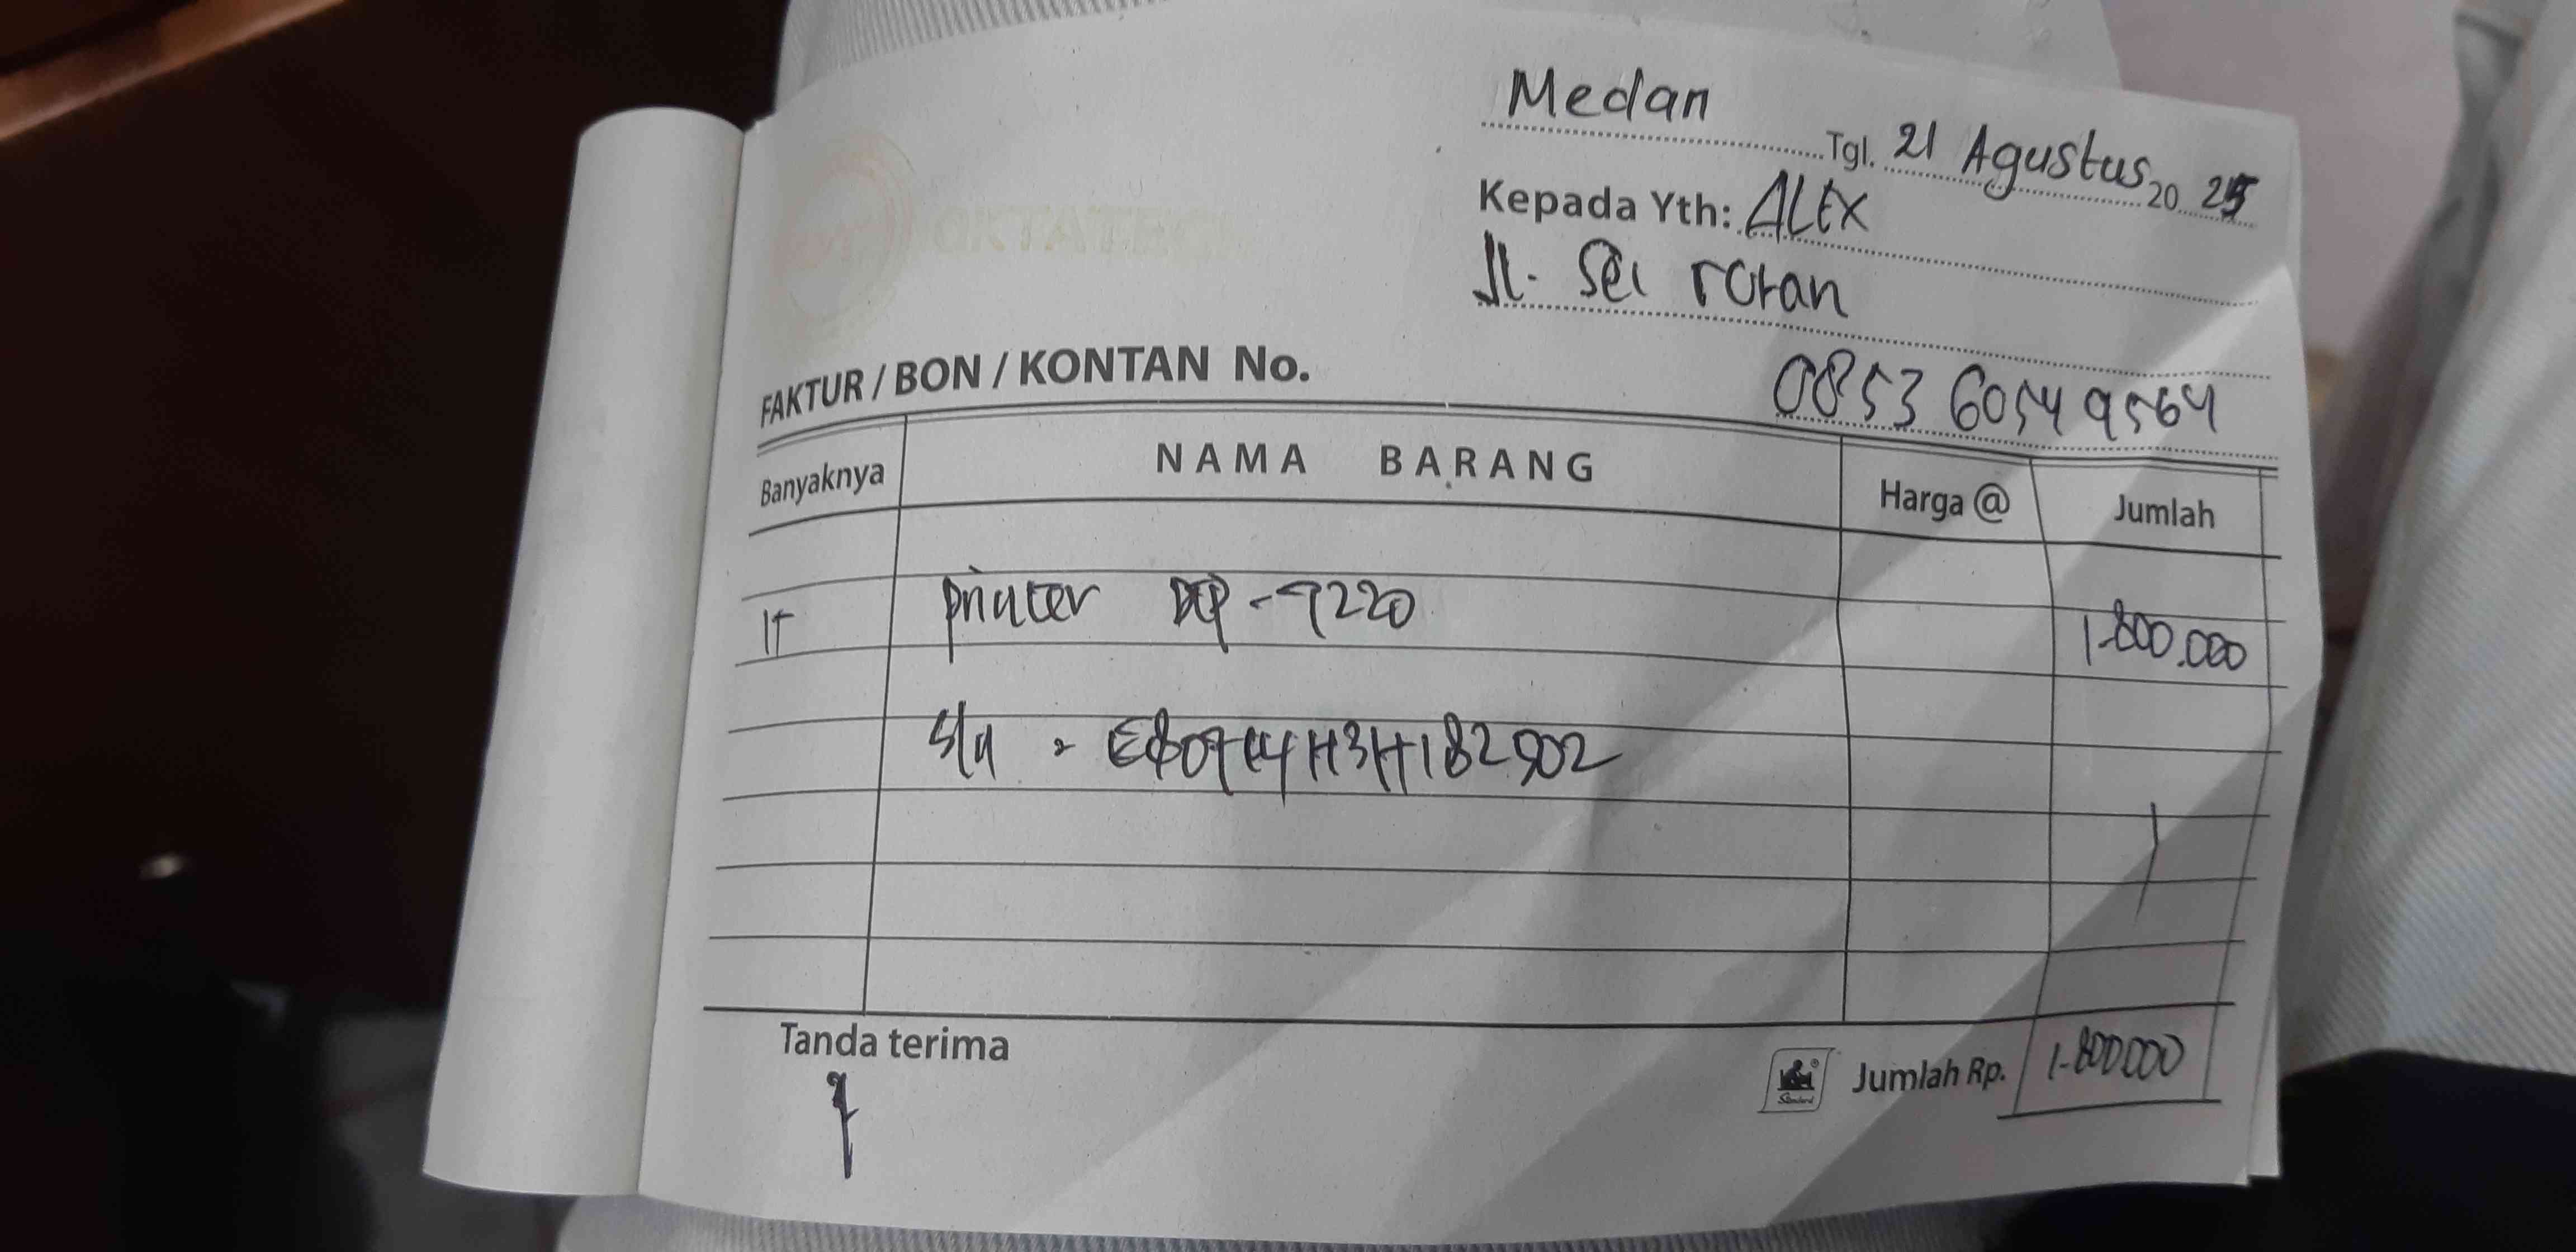 Medan
Tgl. 21 Agustus 2025
Kepada Yth: ALEX
Jl. Sei rotan
0853 6054 9564
FAKTUR / BON / KONTAN No.
Banyaknya NAMA BARANG Harga @ Jumlah
1 printer DCP-T220 1.800.000
S/N =
Tanda terima
Standard
Jumlah Rp. 1.800000